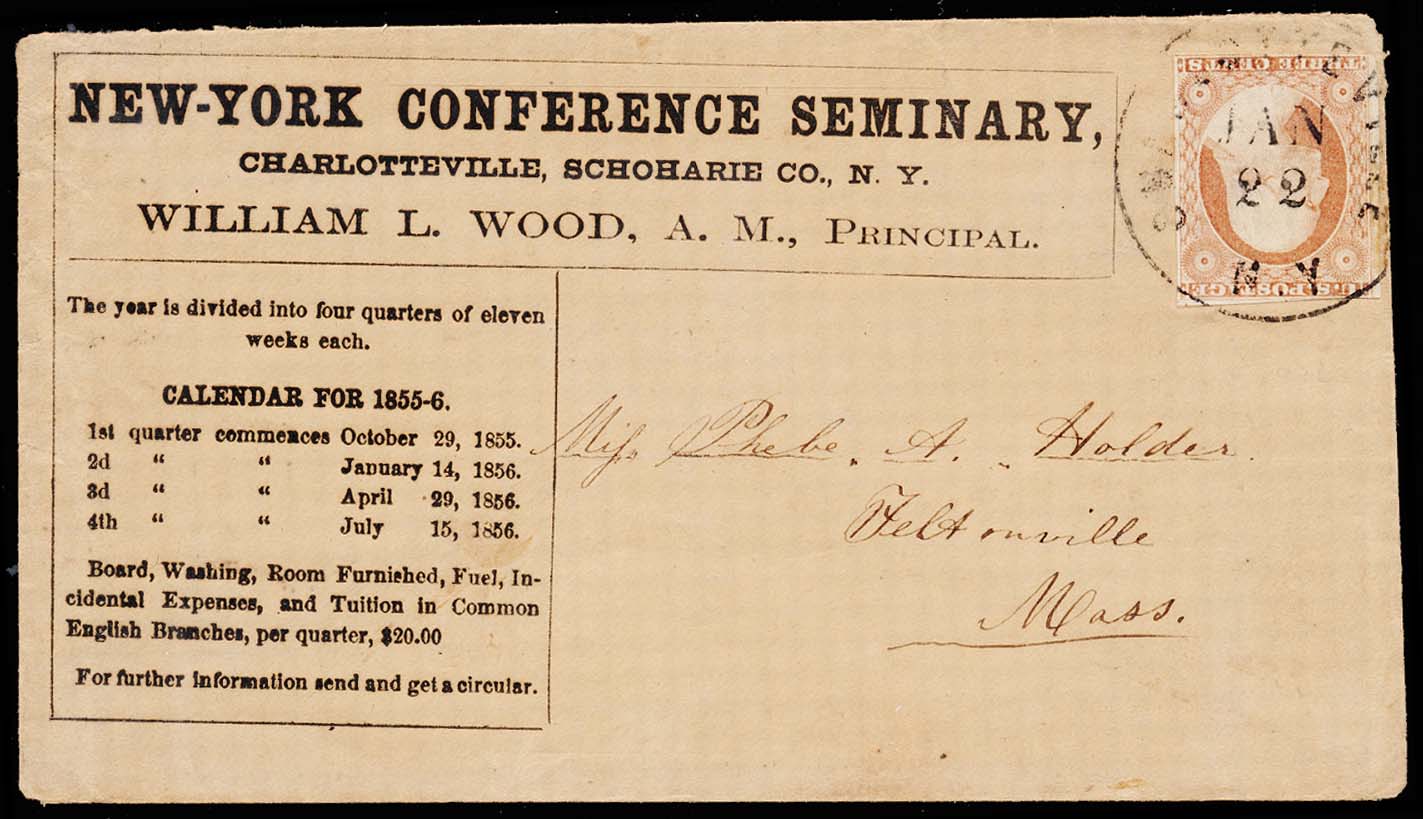 NEW-YORK CONFERENCE SEMINARY,
CHARLOTTEVILLE, SCHOHARIE CO., N. Y.
WILLIAM L. WOOD, A. M., PRINCIPAL.
The year is divided into four quarters of eleven
weeks each.
CALENDAR FOR 1855-6.
1st quarter commences October 29, 1855.
2d “ “ January 14, 1856.
3d “ “ April 29, 1856.
4th “ “ July 15, 1856.
Board, Washing, Room Furnished, Fuel, In-
cidental Expenses, and Tuition in Common
English Branches, per quarter, $20.00
For further information send and get a circular.
THREE CENTS
JAN
22
N.Y
U.S. POSTAGE
Miss Phebe. A. Holder.
Feltonville
Mass.